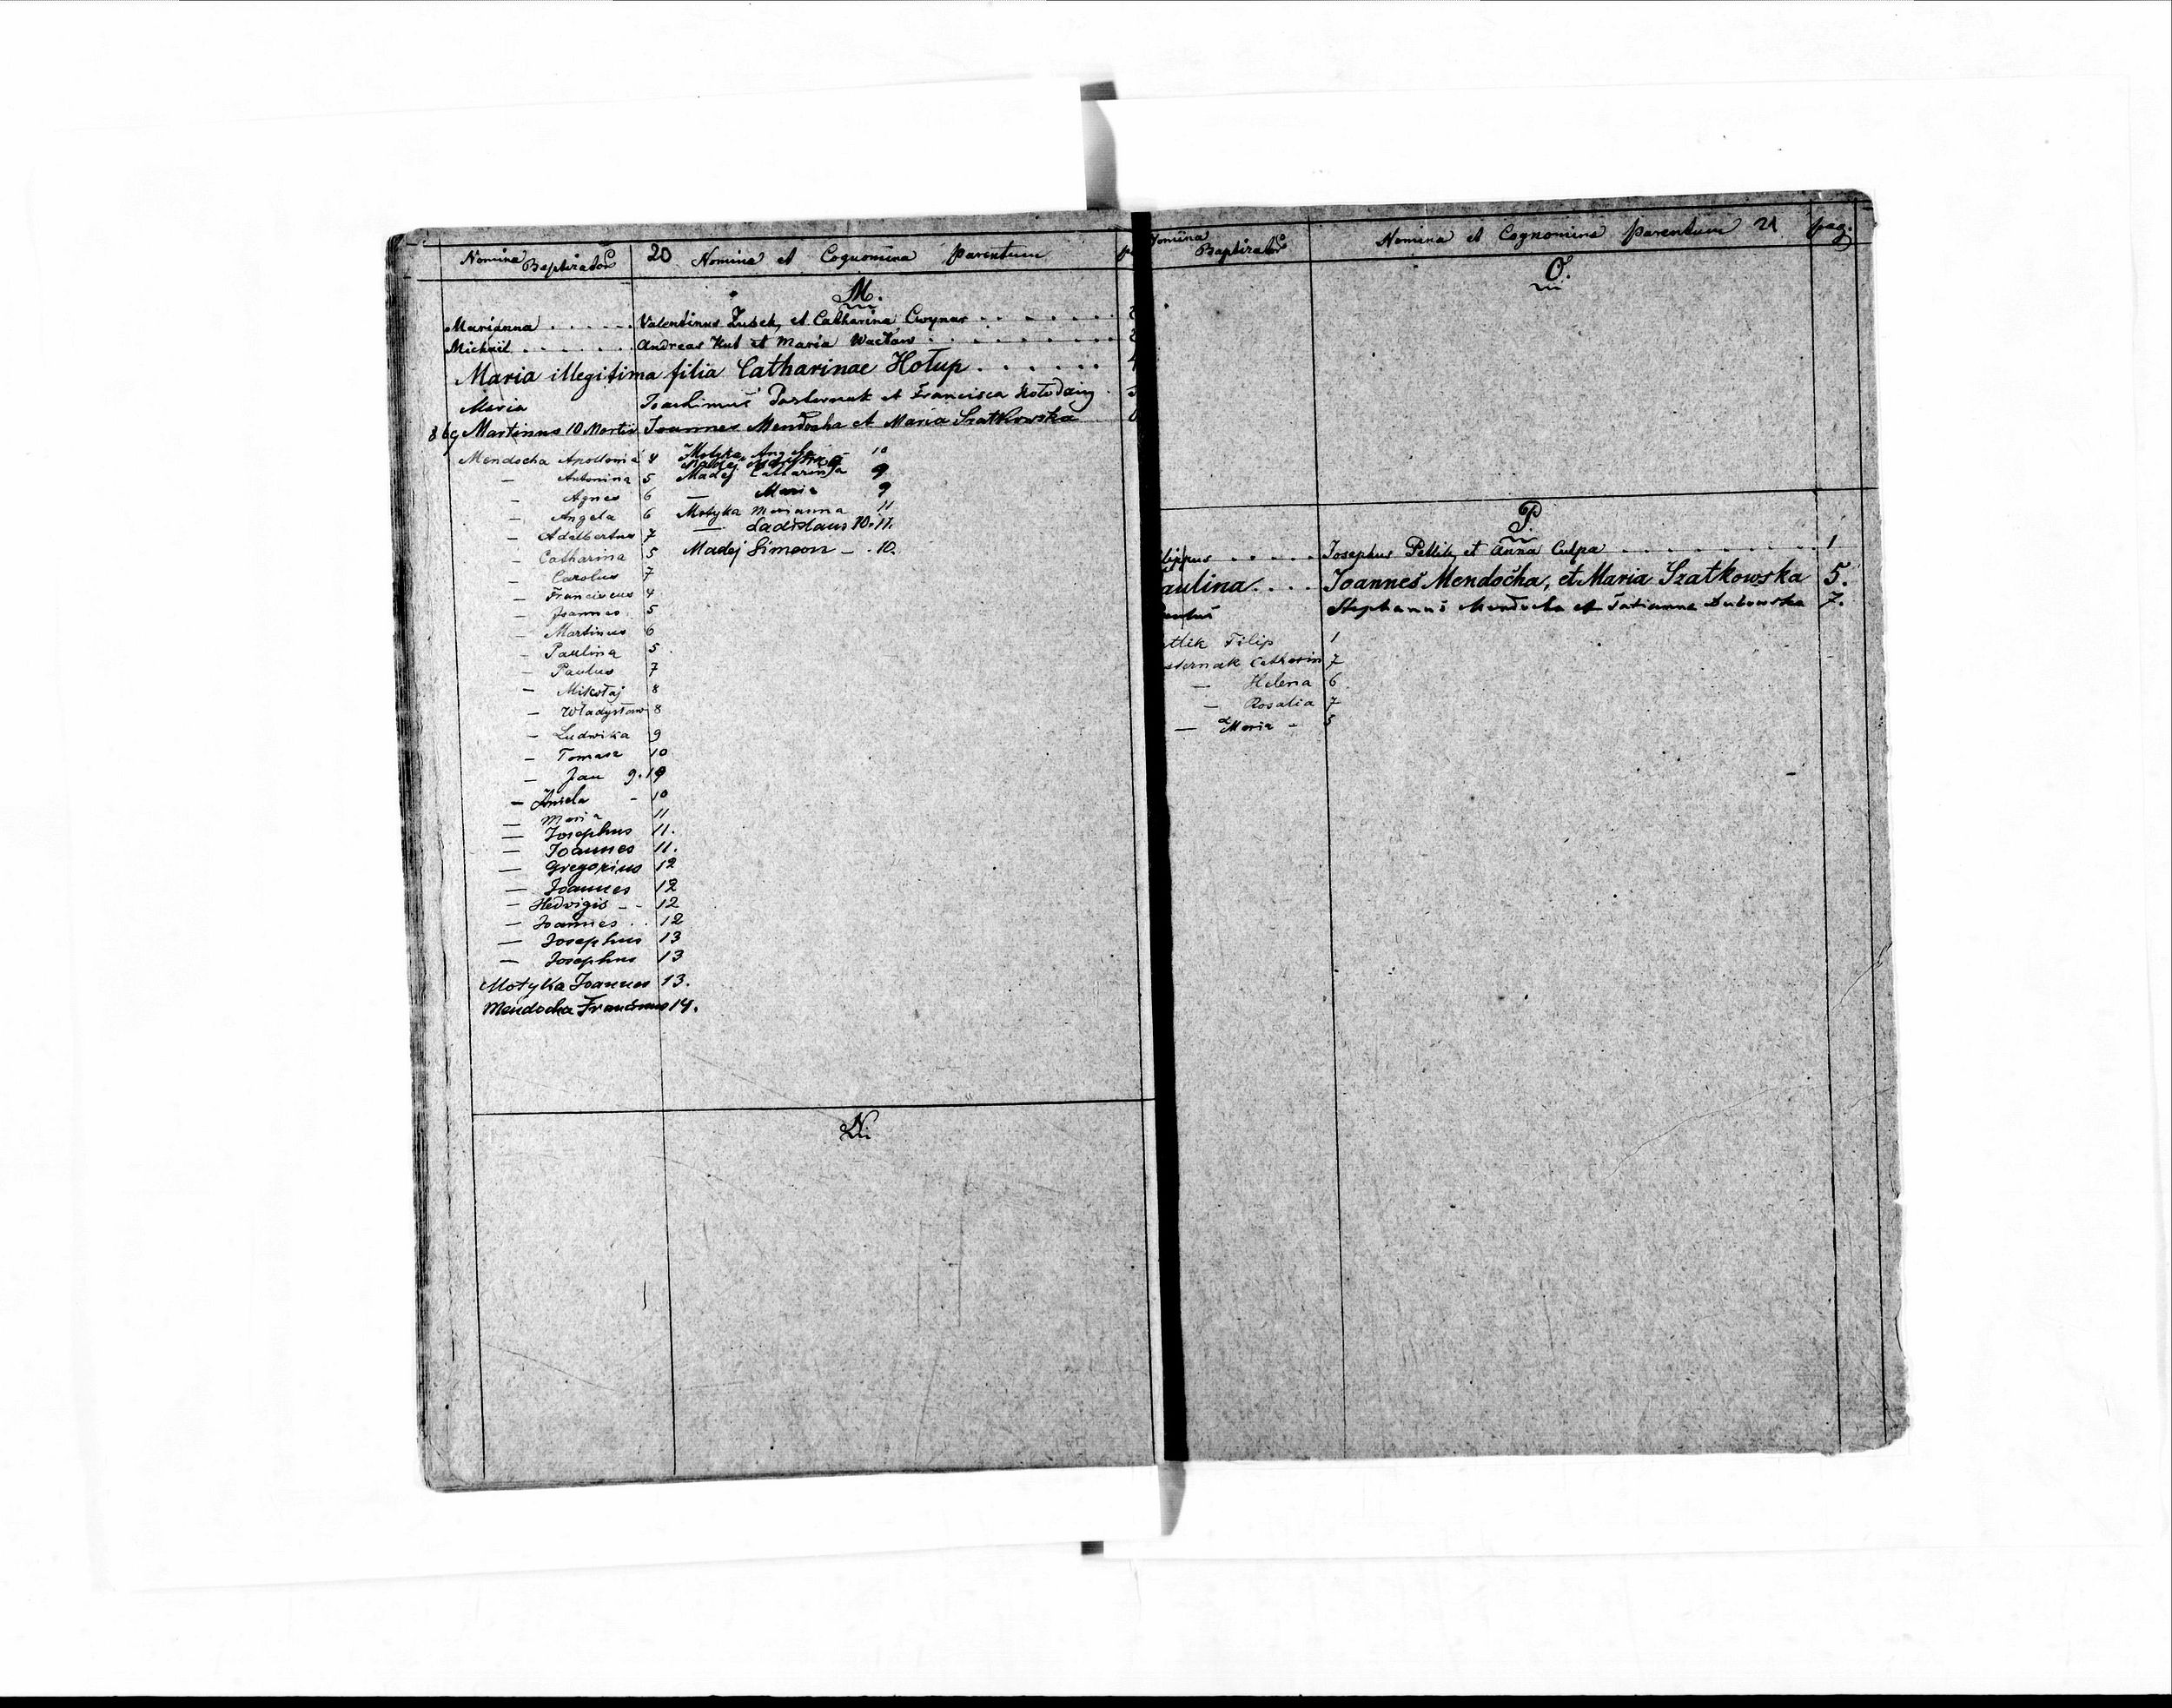 Nomina Baptizator 20 Nomina et Cognomina Parentum
M.
Marianna . . . . . . Valentinus Zubek, et Catharina Cwynar . . . . . . .
Michael . . . . . . . Andreas Kut et Maria Wacław . . . . . . . .
Maria illegitima filia Catharinae Hołup . . . . . .
Maria Joachimus Pasternak et Francisca
869 Martinus 10 Martii Joannes Mendocha et Maria Szatkowska
Mendocha Apollonia 4 Motyka Angela 10
— Antonina 5 Madej Catharina 9
— Agnes 6 — Maria 9
— Angela 6 Motyka Marianna 11
— Adalbertus 7 — Ladislaus 10.11.
— Catharina 5 Madej Simeon — . 10.
— Carolus 7
— Franciscus 4
— Joannes 5
— Martinus 6
— Paulina 5
— Paulus 7
— Mikołaj 8
— Władysław 8
— Ludwika 9
— Tomasz 10
— Jan 9.
— Aniela - 10
— Maria 11
— Josephus 11.
— Joannes 11.
— Gregorius 12
— Joannes 12
— Hedvigis - - 12
— Joannes . . 12
— Josephus 13
— Josephus 13
Motyka Joannes 13.
Mendocha 14.
N.
Nomina Baptizator Nomina et Cognomina Parentum 21 pag.
O.
P.
lippus . . . . . Josephus Petlik, et Anna Culpa . . . . . . . . . . . 1
aulina . . . . Joannes Mendocha, et Maria Szatkowska 5.
Stephanus Mendocha et Tatianna Dubowska 7.
etlik Filip 1
sternak Catharin 7
— Helena 6
— Rosalia 7
— Maria - 5